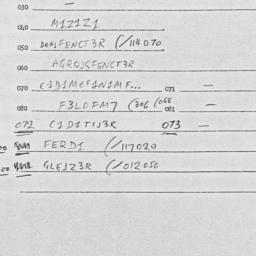 030 —
040 M1Z1Z1
050 DRAJFENCT3R (/114070
060 AGROJSFENCT3R
070 C1D1MCFANIMF... 071 —
080 F3LOFAM7 (306 (068 081 —
072 C1D1TIJ3R 073 —
FERD1 (/117020
GLEJZ3R (/012050